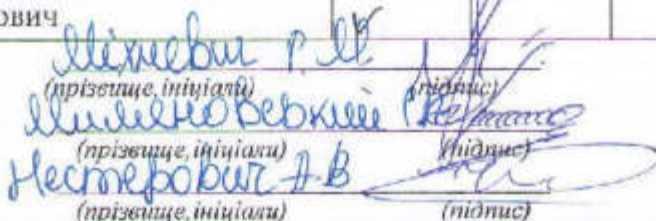 ович
Міхневич Р.М.
(прізвище, ініціали) (підпис)
(прізвище, ініціали) (підпис)
Нестерович А.В
(прізвище, ініціали) (підпис)